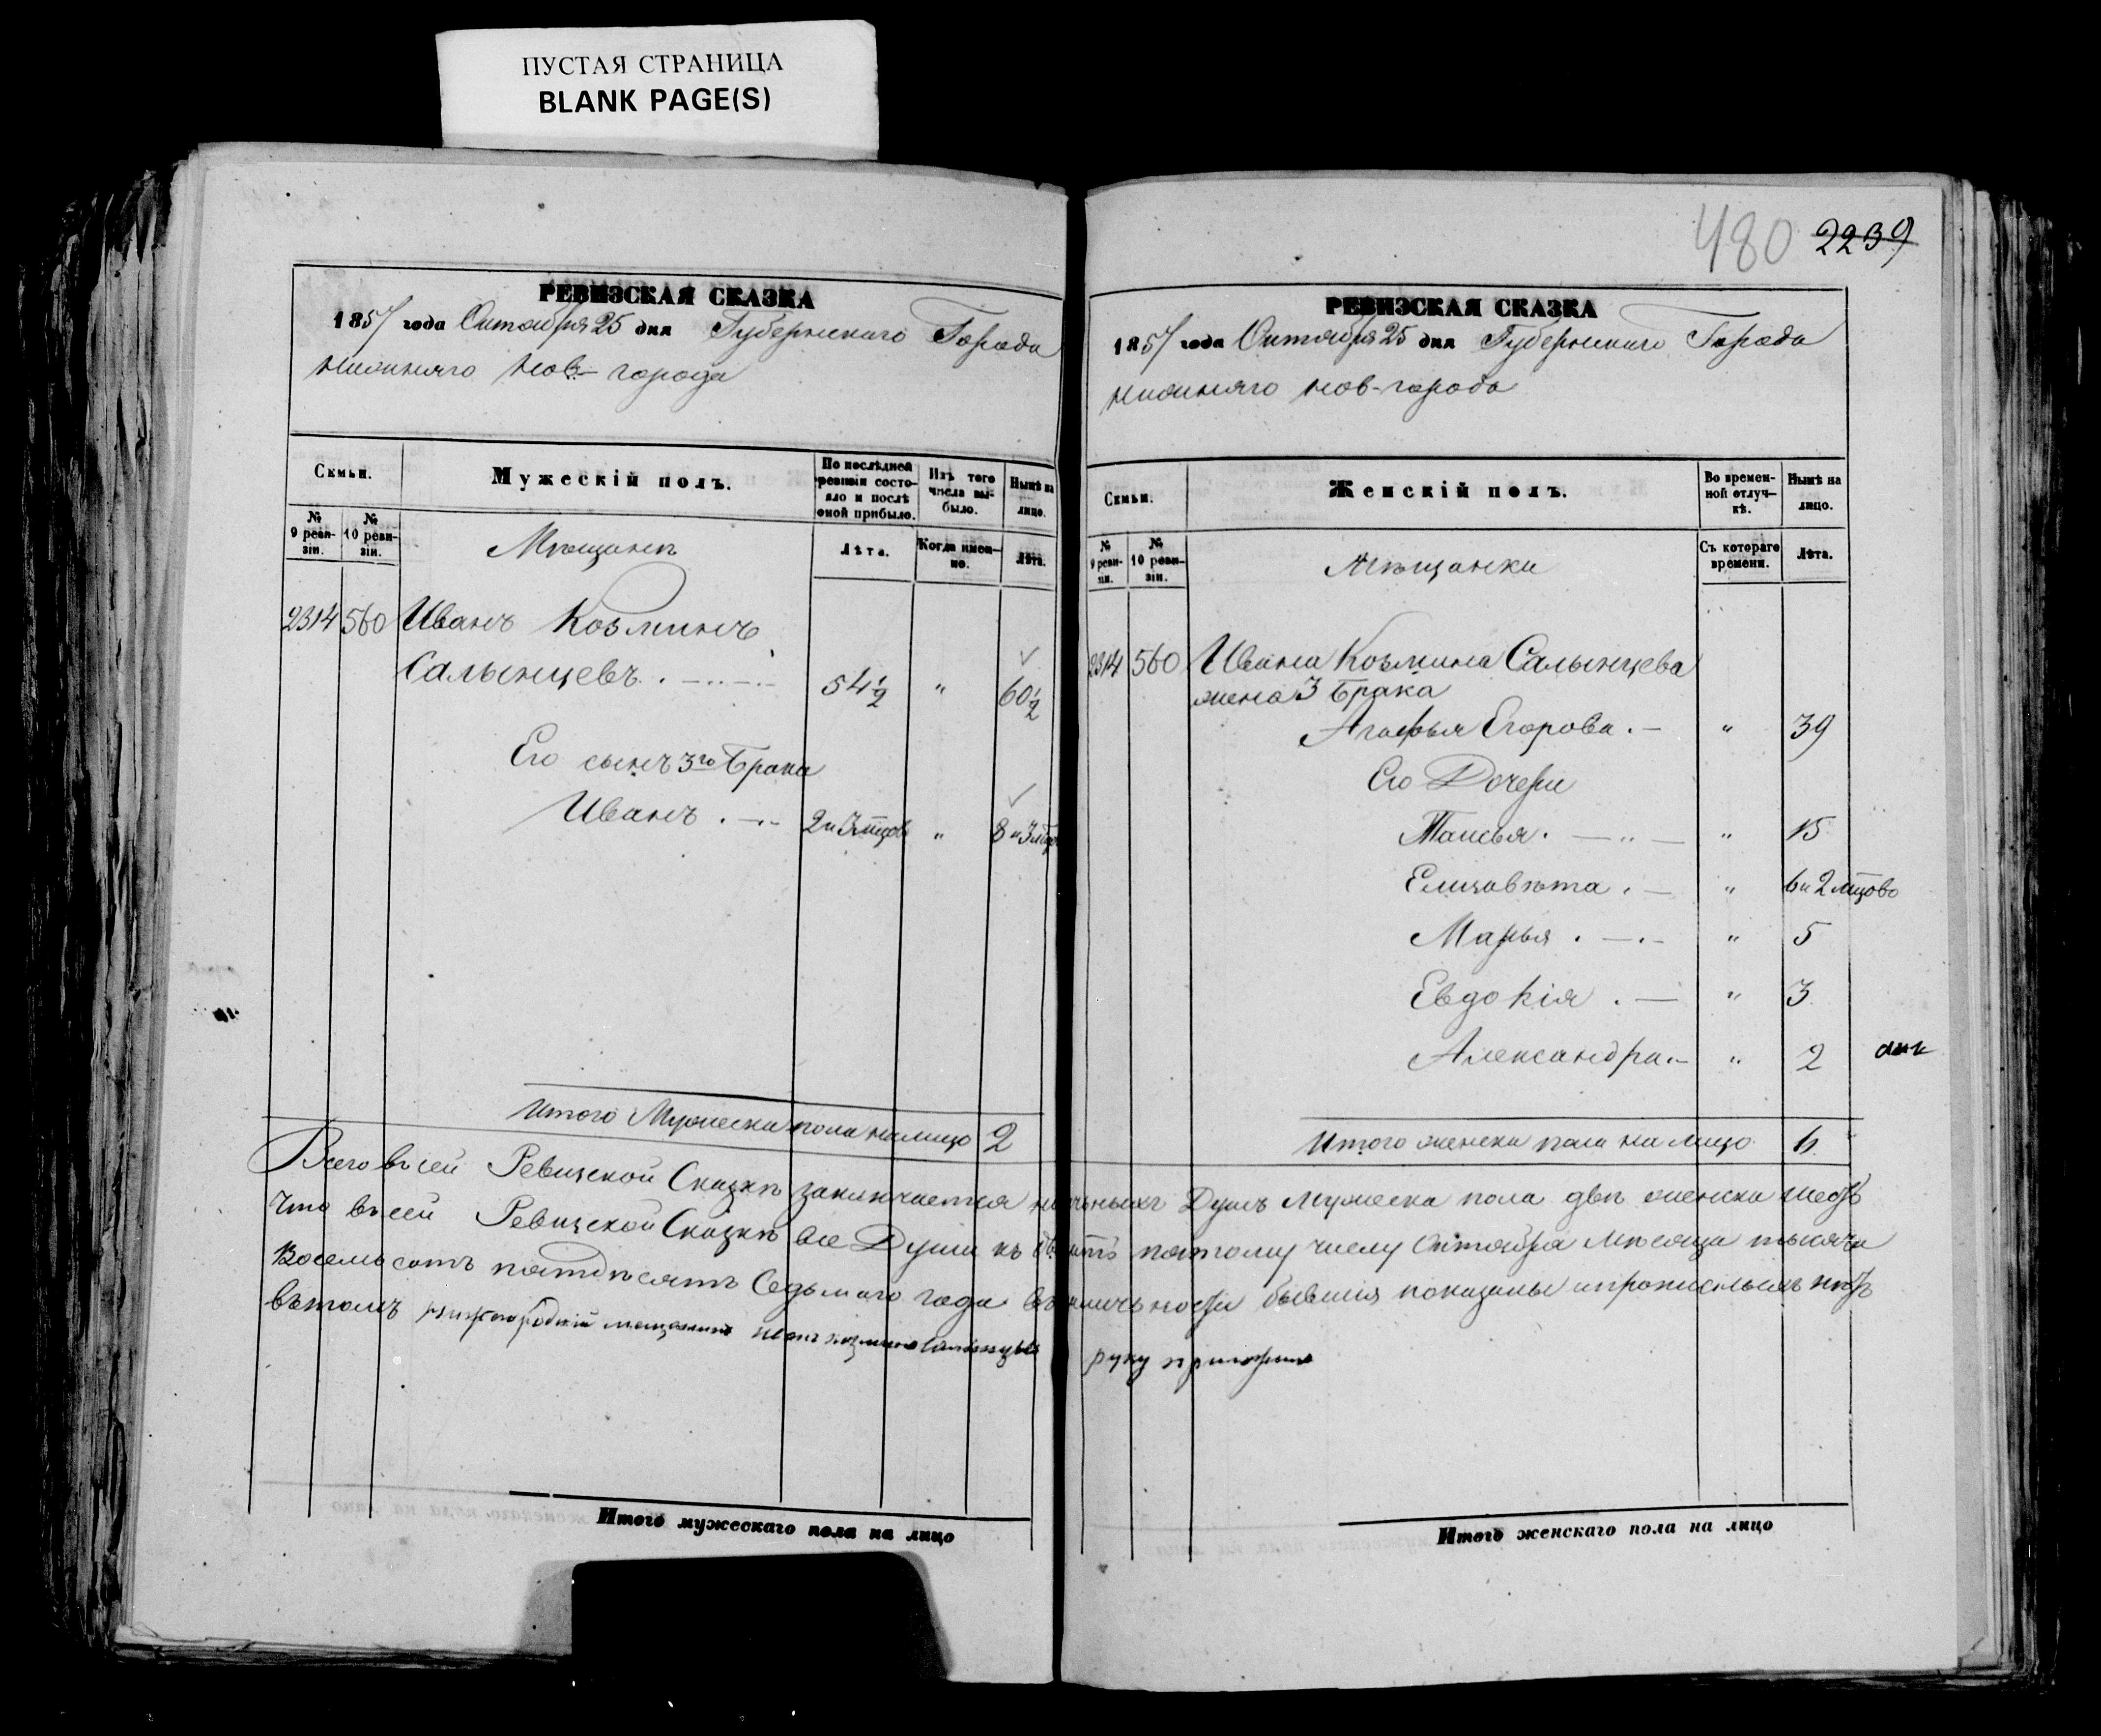 ПУСТАЯ СТРАНИЦА
BLANK PAGE(S)
РЕВИЗСКАЯ СКАЗКА
1857 года Октября 25 дня Губернскаго Города
Нижняго Нов-города
Семьи.
Мужескій полъ.
По послѣдней ревизіи состояло и послѣ оной прибыло.
Изъ того числа выбыло.
Нынѣ на лицо.
№ 9 ревизіи.
№ 10 ревизіи.
Мѣщанъ
Лѣта.
Когда именно.
Лѣта.
2314 560 Иванъ Козминъ
Салынцевъ . 54 1/2 " 60 1/2
Его сынъ 3го Брака
Иванъ . 2 и 3 мцовъ " 8 и 3 мцо
Итого Мужеска пола налицо 2
480 2239
РЕВИЗСКАЯ СКАЗКА
1857 года Октября 25 дня Губернскаго Города
Нижняго Нов-города
Семьи.
Женскій полъ.
Во временной отлучкѣ.
Нынѣ на лицо.
№ 9 ревизіи.
№ 10 ревизіи.
Мѣщанки
Съ котораго времени.
Лѣта.
2314 560 Ивана Козмина Салынцева
жена 3 Брака
Агафья Егорова . " 39
Его Дочери
Таисья . " 15
Елизавѣта . " 6 и 2 мцовъ
Марья . " 5
Евдокія . " 3
Александра . " 2
Итого женска пола на лицо 6
Всего въ сей Ревизской Сказкѣ заключается наличныхъ Душъ Мужеска пола двѣ женска шесть
Что въ сей Ревизской Сказкѣ все Души къ двадцать пятому числу Октября Мѣсяца тысяча
Восемьсотъ пятдѣсятъ Седьмаго года въ наличности бывшия показаны и прописныхъ нѣтъ
Въ томъ нижегородскій мещанинъ Иванъ козминъ Салынцывъ руку приложилъ
Итого мужескаго пола на лицо
Итого женскаго пола на лицо